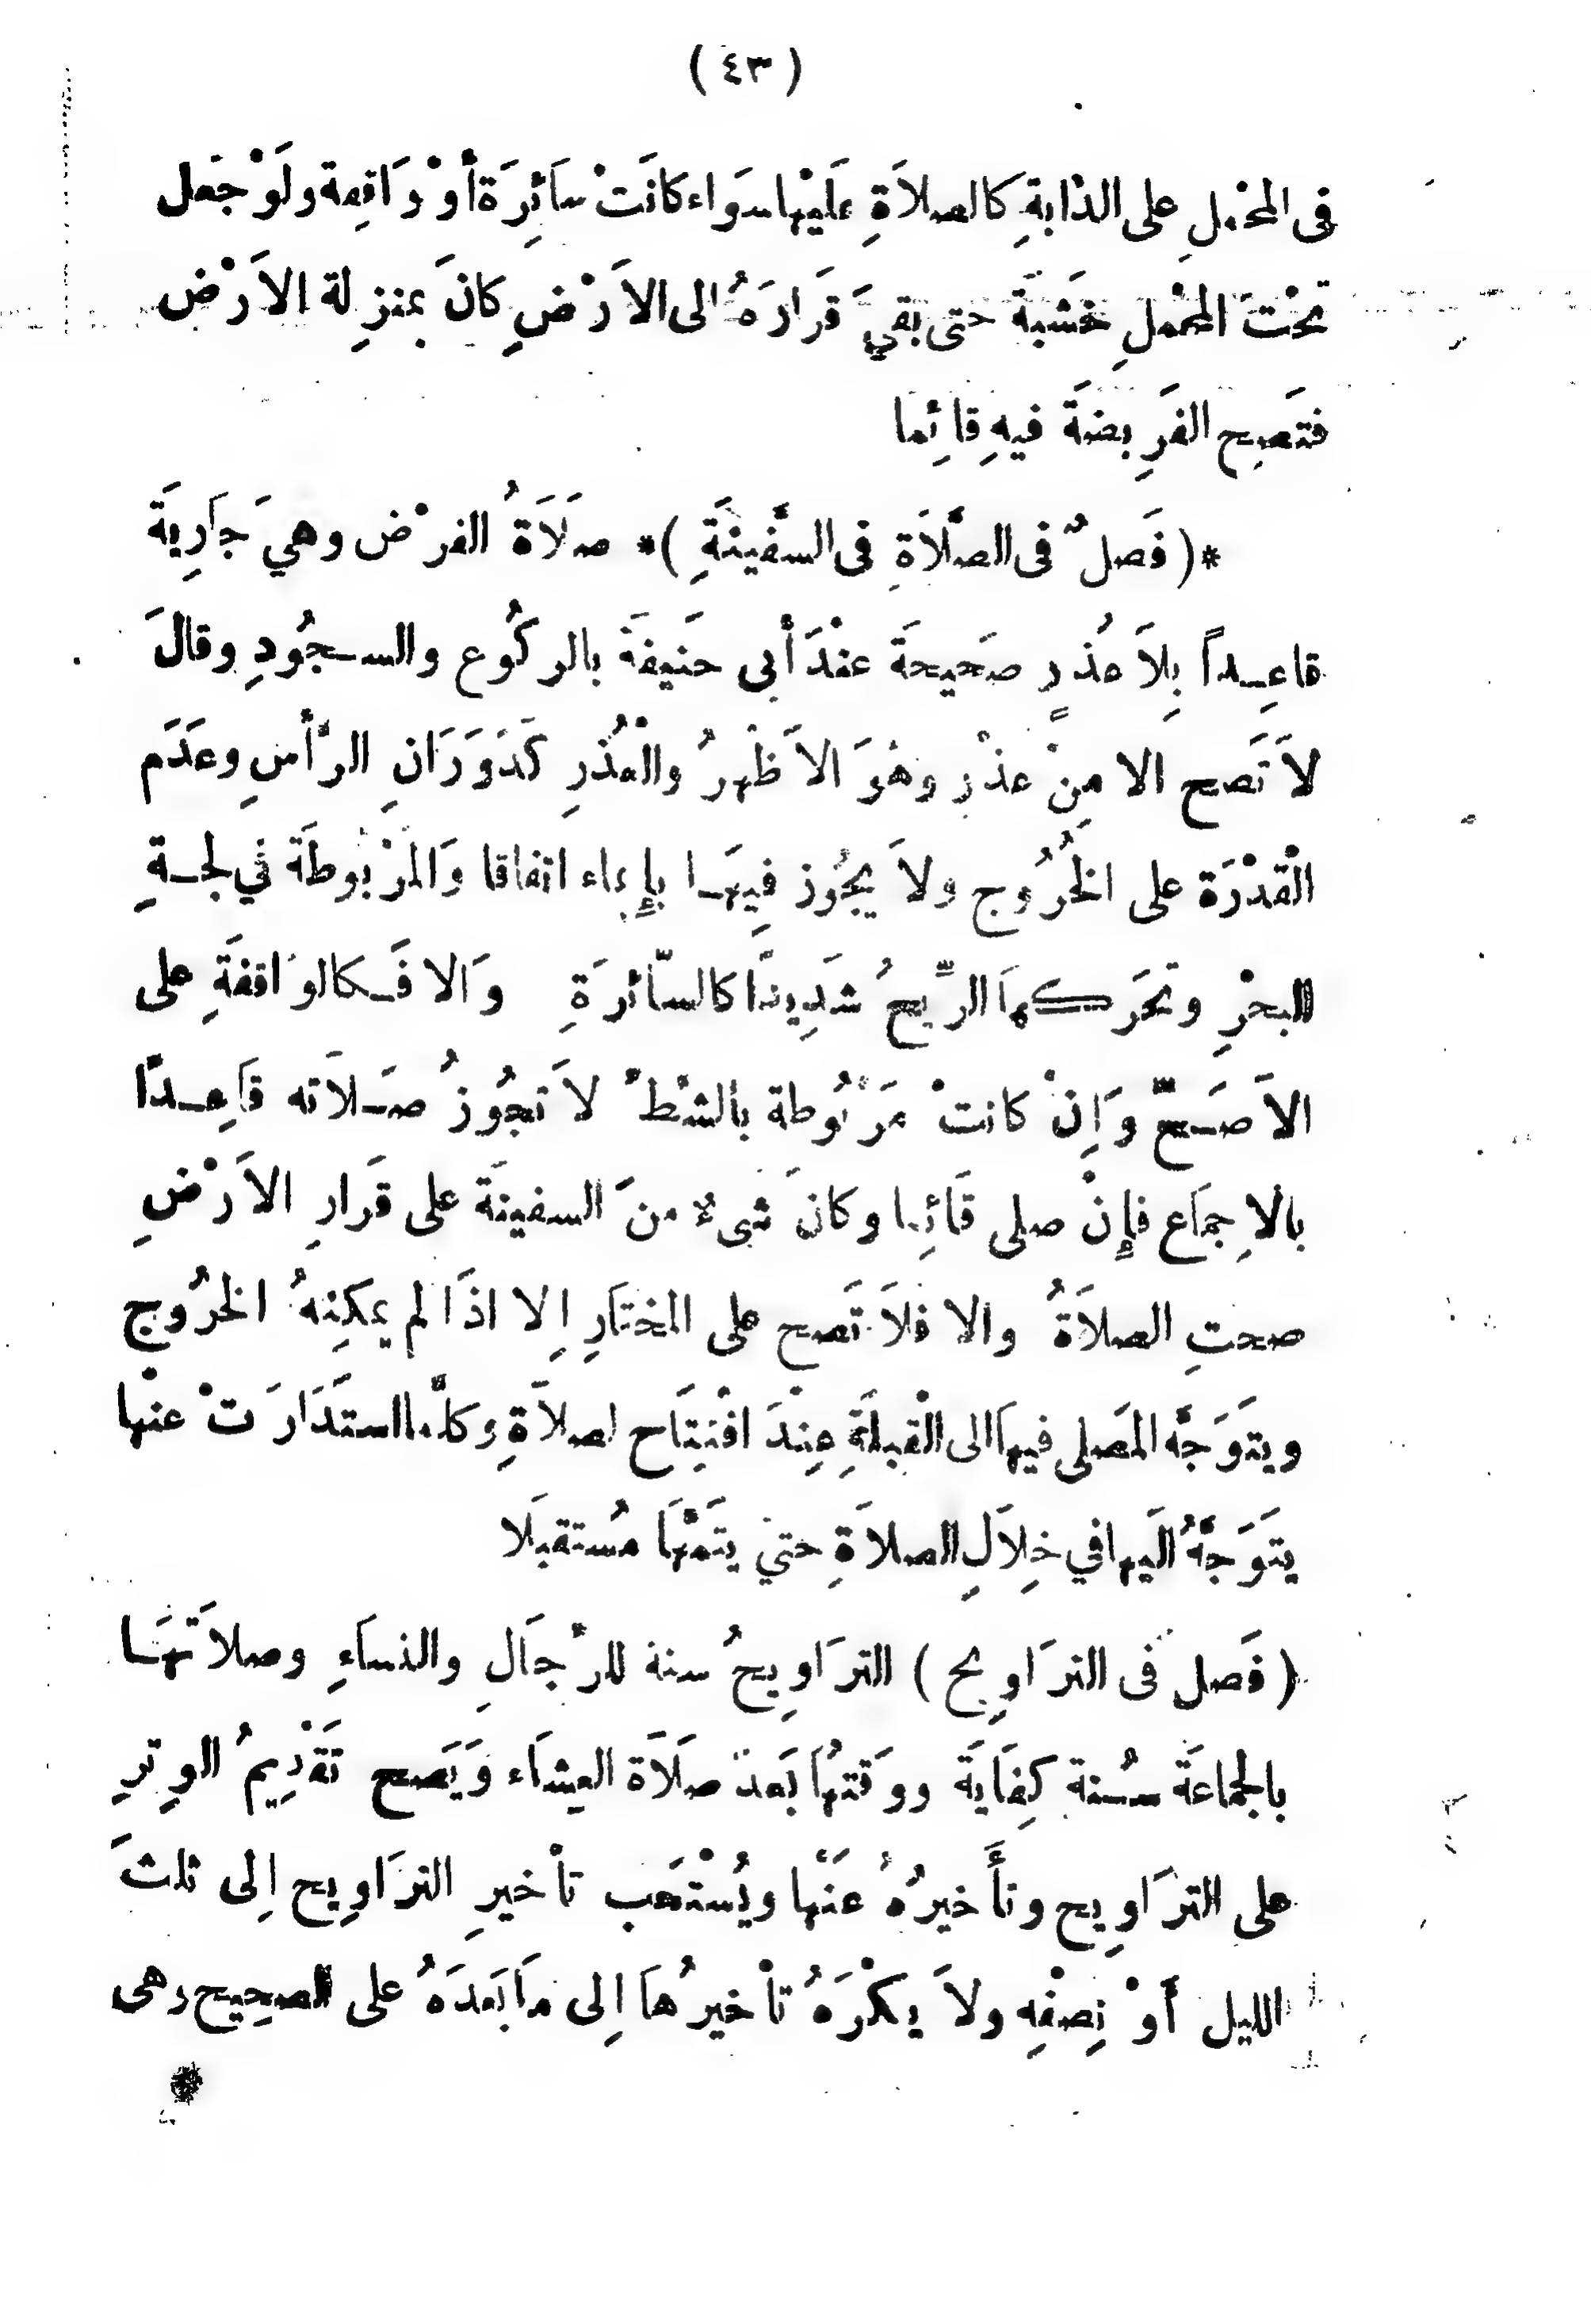 ( ٤٣ )
فى المحمل على الدابةِ كالصلاَةِ عَليْها سَواء كانَتْ سائِرَة أوْ وَاقفة ولَوْ جَعل
تحْتَ المحْملِ خَشبَة حتى بقيَ قَرَارَهُ الى الاَرْضِ كانَ بمنزِلة الاَرْض
فتَصِح الفَرِيضَةَ فيهِ قائِما
*( فَصلٌ فى الصَّلاَةِ فى السَّفينَةِ )* صلَاَةُ الفرْض وهيَ جارِيَة
قاعِداً بِلاَ عُذرٍ صَحيحَة عنْدَ أبى حَنيفَة بالركُوع والسجُودِ وقالَ
لاَ تَصح الا مِنْ عذْرٍ وهُوَ الاَظْهرُ والْعُذرِ كَدَوَرَانِ الرَّأسِ وعَدَم
الْقدْرَة على الخُرُوج ولاَ يجُوز فِيهَا بإِيماء اتفاقا وَالمَرْبُوطَة في لجةِ
البحْرِ وتحَركهاَ الرِّيحُ شَدِيدًا كالسّائرَةِ وَالا فَكالوَاقفَةِ على
الاَصَحّ وَإِنْ كانتْ مَرْبُوطة بالشطْ لاَ تجُوزُ صَلاَته قَاعِدًا
بالاِجمَاع فإِنْ صلى قَائِما وكانَ شىءٌ منَ السفينَة على قَرارِ الاَرْضِ
صحتِ الصلاَةُ والا فلاَ تَصح على المختَارِ اِلا اذَا لم يمكِنهُ الخرُوج
ويتَوَجَّه المَصلى فيهاَ الى الْقبلَةِ عِنْدَ افْتِتَاح لصلاَةِ وكلَّما استَدَارَتْ عنْها
يتَوَجَّهُ الَيها في خِلاَلِ الصلاَةِ حتيْ يتَمّهَا مُستقبلَا
( فَصل فى الترَاوِيح ) الترَاوِيحُ سنة للرّجَالِ والنساَءِ وصلاَتهَا
بالجماعَة سُنة كِفَايَة ووَقتهُا بَعدَ صلَاَة العِشَاء وَيَصح تَقْدِيمُ الوِترِ
على الترَاوِيح وتأَخيرُهُ عَنْها ويُسْتحَب تأْخيرِ الترَاوِيح اِلى ثلثَ
الليل أوْ نِصفْهِ ولاَ يكْرَهُ تأْخيرُهَا اِلى مَا بَعدَهُ على الصحِيح وهى